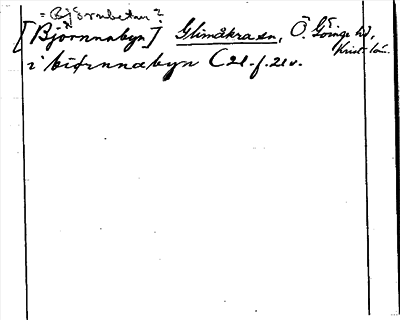 = Björnbetan?
[Björnnabyn] Glimåkra sn, Ö. Göinge hd,
Krist. län.
i biörnnabyn (21. f. 21 v.